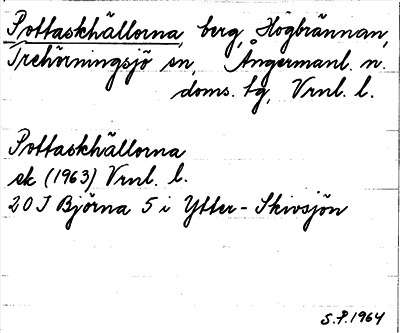 Pottaskhällorna, berg, Högbrännan,
Trehörningsjö sn, Ångermanl. n.
doms. tg, Vrnl. l.
Pottaskhällorna
ek (1963) Vrnl. l.
20 J Björna 5 i Ytter-Skivsjön
S.P. 1964